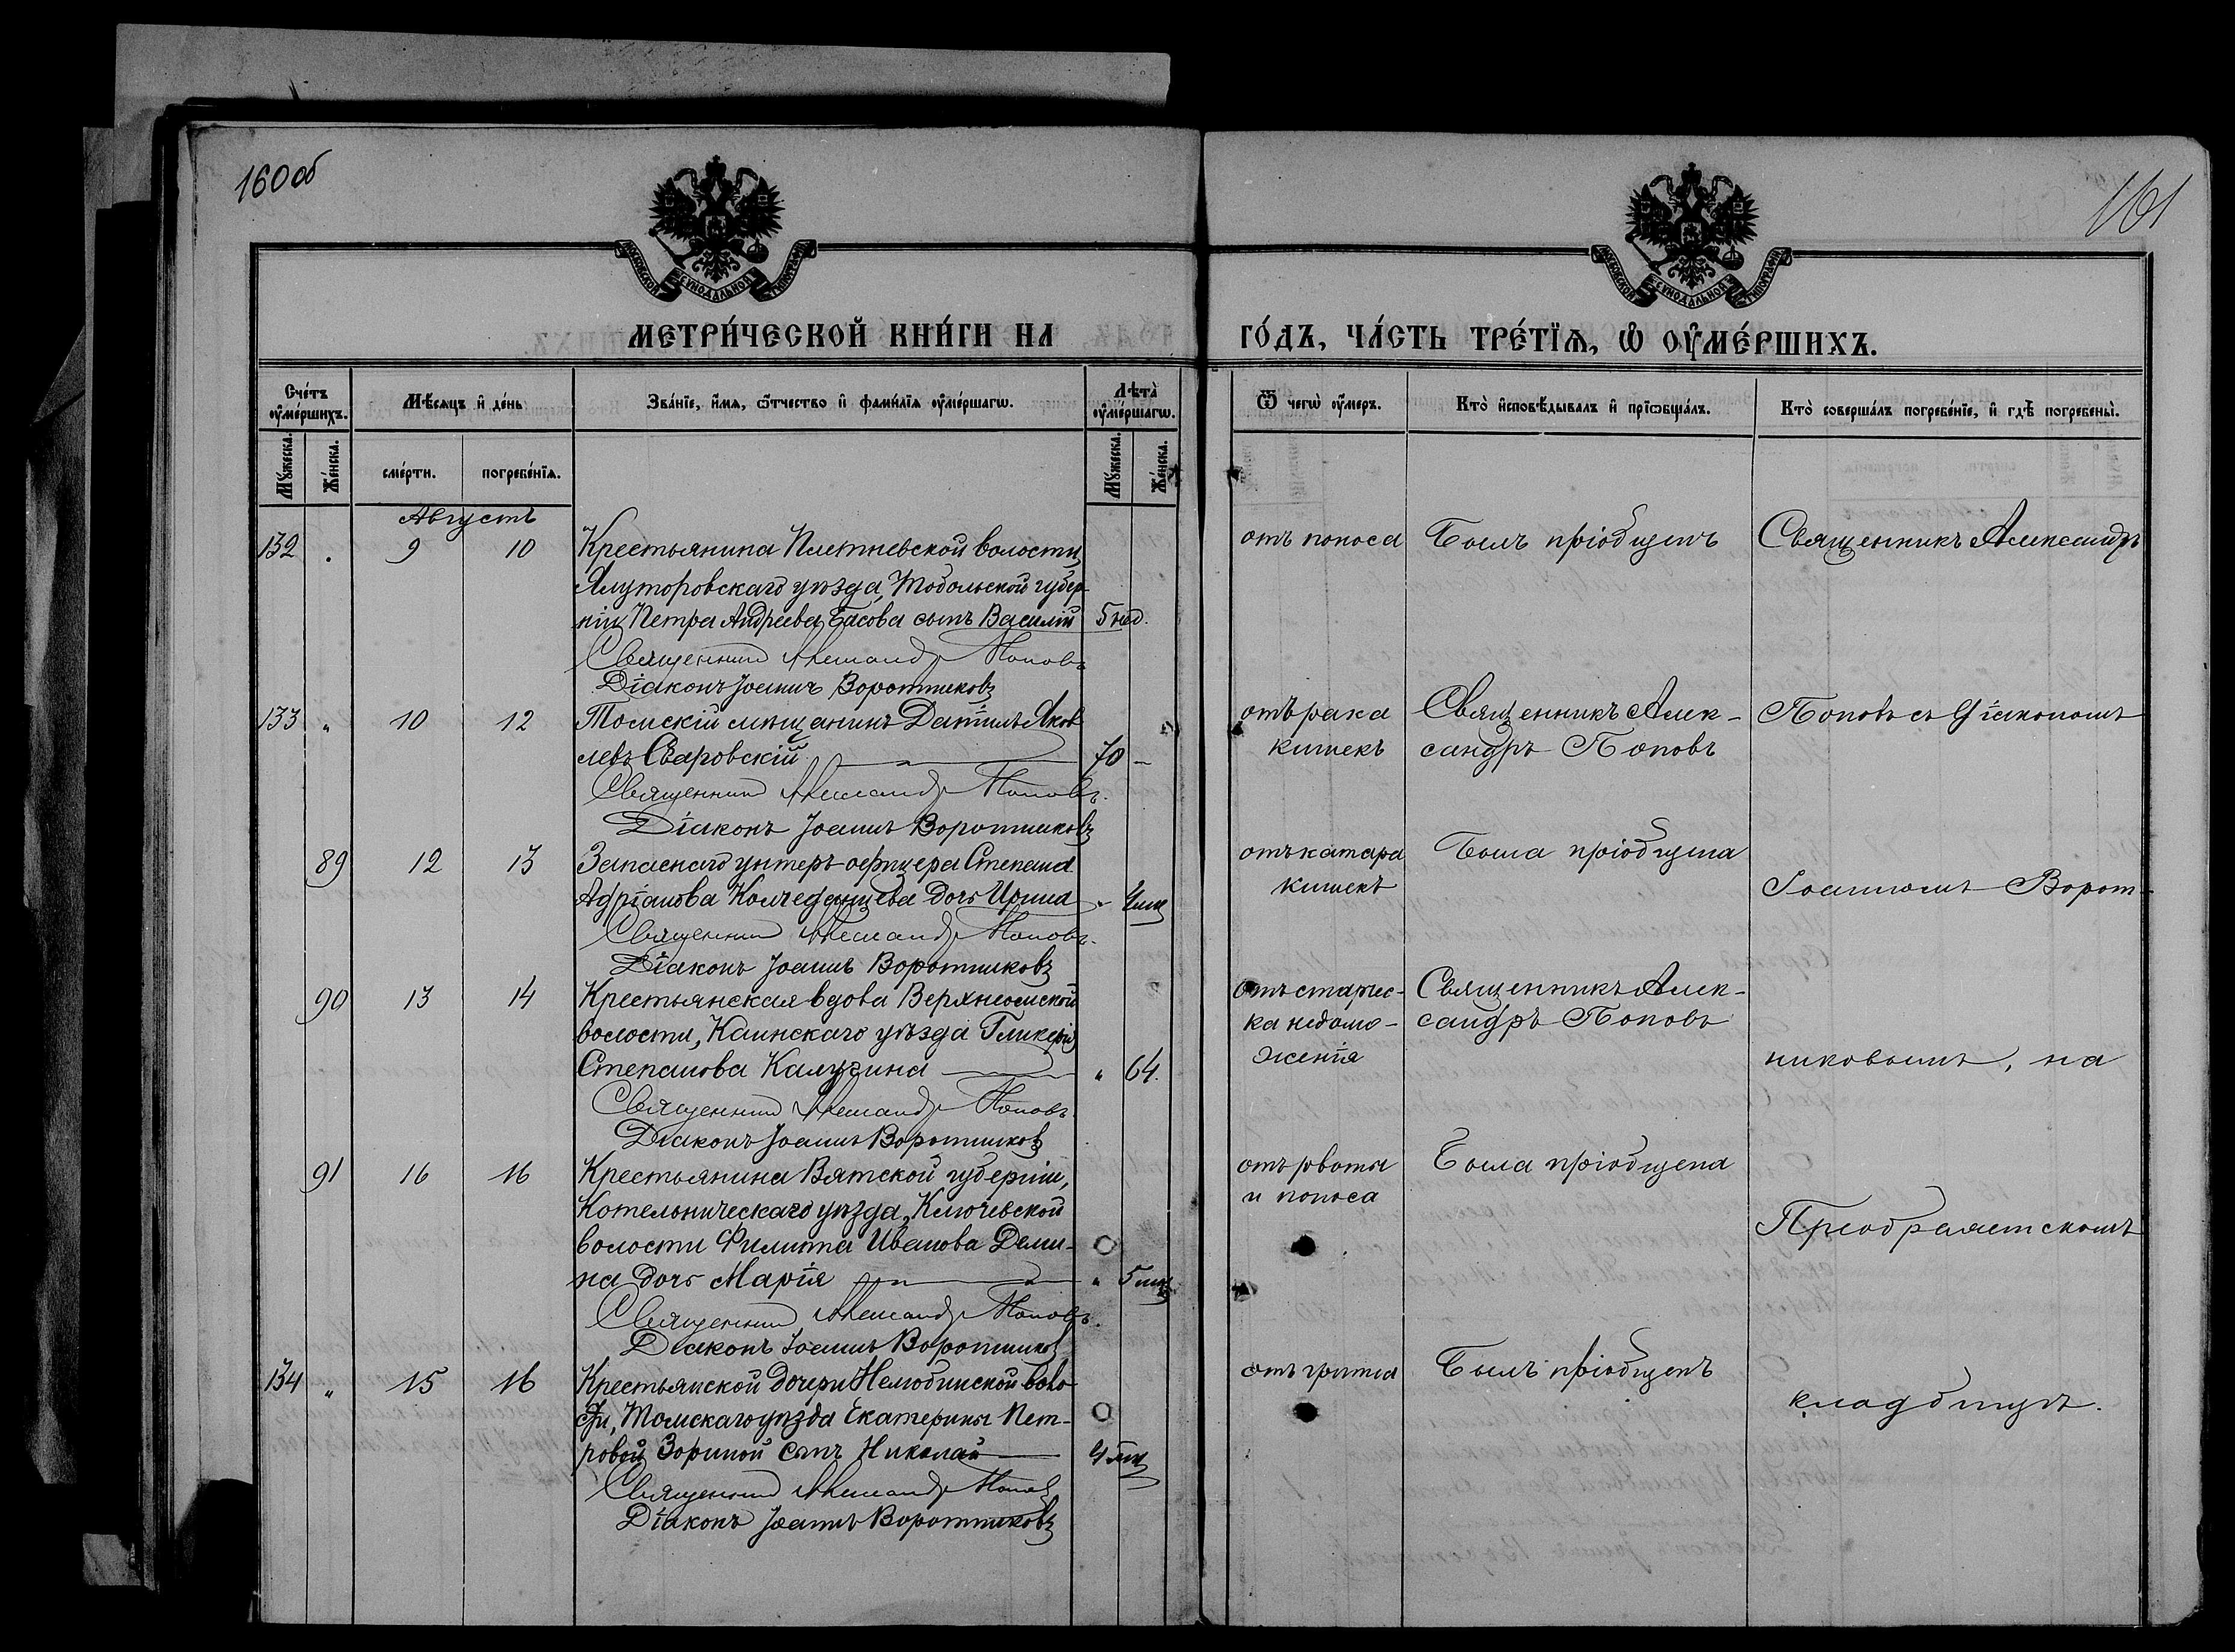 160 об
161
МОСКОВСКОЙ СѴНОДАЛЬНОЙ ТИПОГРАФІИ
МОСКОВСКОЙ СѴНОДАЛЬНОЙ ТИПОГРАФІИ
МЕТРИ́ЧЕСКОЙ КНИ́ГИ НА ГО́ДЪ, ЧА́СТЬ ТРЕ́ТЇѦ, Ѡ ОУМЕ́РШИХЪ.
Сче́тъ оуме́ршихъ.
Мѣсѧцъ и де́нь
Зва́нїе, и́мѧ, ѻ́тчество и фами́лїѧ оуме́ршагѡ.
Лѣта̀ оуме́ршагѡ.
Ѿ чегѡ̀ оу́меръ.
Кто̀ исповѣ́дывалъ и прїѡбща́лъ.
Кто̀ соверша́лъ погребе́нїе, и гдѣ̀ погребены̀.
Мꙋ́жеска. Же́нска.
сме́рти. погребе́нїѧ.
Мꙋ́жеска. Же́нска.
Августъ
132 . 9 10 Крестьянина Плетневской волости,
Ялуторовскаго уѣзда, Тобольской губер-
ніи Петра Андреева Басова сынъ Василій 5 нед.
Священникъ Александръ Поповъ
Діаконъ Іоаннъ Воротниковъ
отъ поноса Былъ пріобщенъ Священникъ Александръ
133 „ 10 12 Томскій мѣщанинъ Даніилъ Яков
левъ Сваровскій 70 –
Священникъ Александръ Поповъ.
Діаконъ Іоаннъ Воротниковъ
отъ рака
кишекъ
Священникъ Алек-
сандръ Поповъ
Поповъ съ Діакономъ
89 12 13 Запаснаго унтеръ-офицера Степана
Адріанова Колчеданцева дочь Ирина „ 4 мц
Священникъ Александръ Поповъ.
Діаконъ Іоаннъ Воротниковъ
отъ катара
кишекъ
Была пріобщена
Іоанномъ Ворот-
90 13 14 Крестьянская вдова Верхнеомской
волости, Каинскаго уѣзда Гликерія
Степанова Калугина „ 64.
Священникъ Александръ Поповъ
Діаконъ Іоаннъ Воротниковъ
отъ старчес-
ка недомо-
женія
Священникъ Алек-
сандръ Поповъ
никовымъ, на
91 16 16 Крестьянина Вятской губерніи,
Котельническаго уѣзда, Ключевской
волости Филиппа Иванова Деми-
на дочь Марія „ 5 мц
Священникъ Александръ Поповъ.
Діаконъ Іоаннъ Воротниковъ
отъ рвоты
и поноса
Была пріобщена
Преображенскомъ
134 „ 15 16 Крестьянской дочери Нелюбинской воло
сти, Томскаго уѣзда Екатерины Пет-
ровой Зориной сынъ Николай 4 мц
Священникъ Александръ Поповъ
Діаконъ Іоаннъ Воротниковъ
Былъ пріобщенъ
кладбищѣ.